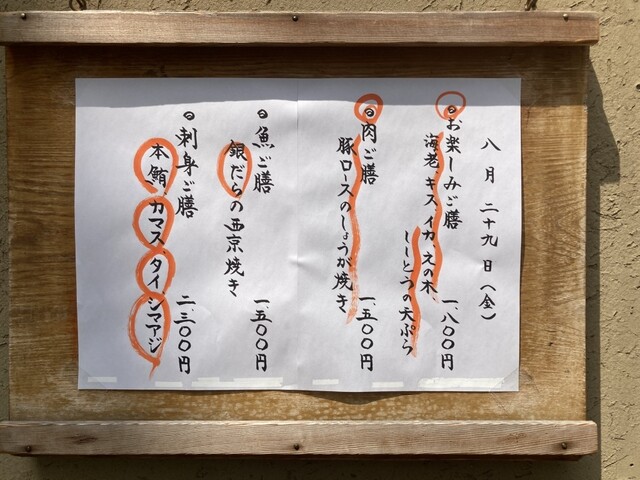 八月二十九日(金)
お楽しみご膳
海老、キス、イカ、えの木、
ししとうの天ぷら
一、八〇〇円
肉ご膳
豚ロースのしょうが焼き
一、五〇〇円
魚ご膳
銀だらの西京焼き
一、五〇〇円
刺身ご膳
本鮪、カマス、タイ、シマアジ
二、三〇〇円